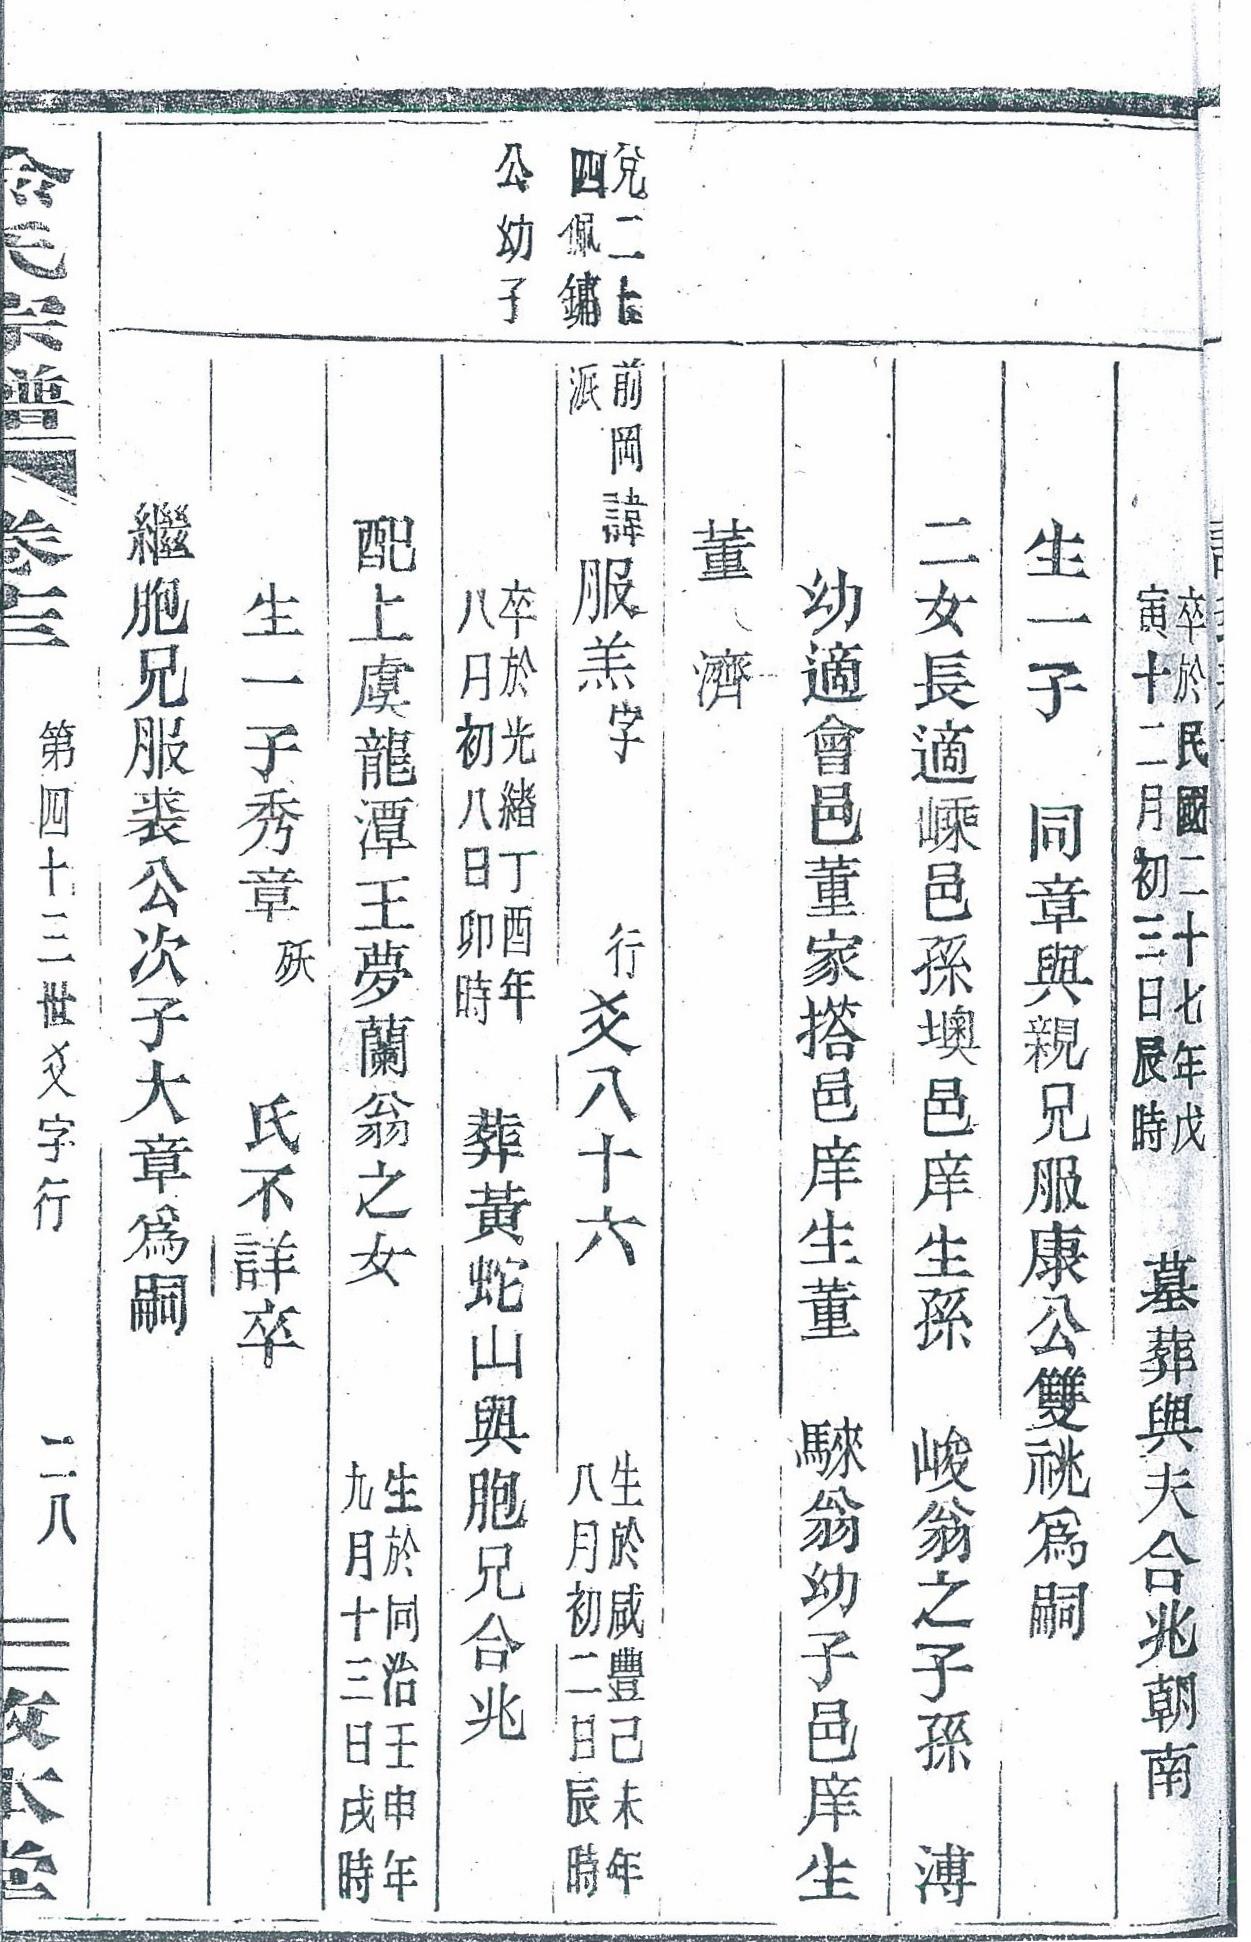 卒於民國二十七年戊
寅十二月初三日辰時
墓葬與夫合兆朝南
生一子 同章與親兄服康公雙祧爲嗣
二女長適嵊邑孫墺邑庠生孫 峻翁之子孫 溥
幼適會邑董家塔邑庠生董 騋翁幼子邑庠生
董 濟
兌二七
四佩鏞
公幼子
前岡
派
諱服羔字 行爻八十六
生於咸豐己未年
八月初二日辰時
卒於光緒丁酉年
八月初八日卯時
葬黃蛇山與胞兄合兆
配上虞龍潭王夢蘭翁之女
生於同治壬申年
九月十三日戌時
生一子秀章 殀 氏不詳卒
繼胞兄服裘公次子大章爲嗣
氏宗譜 卷 第四十三世爻字行 二八 本堂